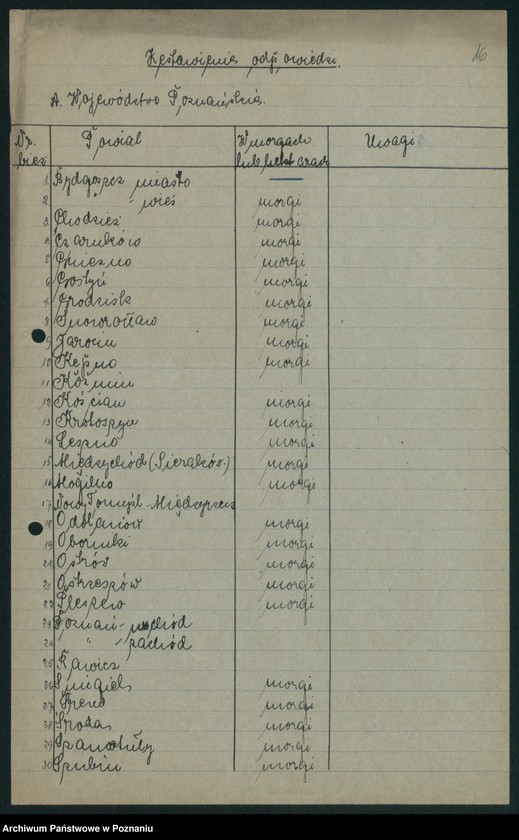 16
Zestawienie odpowiedzi.
A. Województwo Poznańskie.
Nr. bież Powiat W morgach lub hekt arach Uwagi
1 Bydgoszcz miasto —
2 " - wieś morgi
3 Chodzież morgi
4 Czarnków morgi
5 Gniezno morgi
6 Gostyń morgi
7 Grodzisk morgi
8 Inowrocław morgi
9 Jarocin morgi
10 Kępno morgi
11 Koźmin
12 Kościan morgi
13 Krotoszyn morgi
14 Leszno morgi
15 Międzychód (Sieraków.) morgi
16 Mogilno morgi
17 Nowy Tomyśl - Międzyrzecz
18 Odolanów morgi
19 Oborniki morgi
20 Ostrów morgi
21 Ostrzeszów morgi
22 Pleszew morgi
23 Poznań - wschód
24 " - zachód
25 Rawicz
26 Śmigiel morgi
27 Śrem morgi
28 Środa morgi
29 Szamotuły morgi
30 Szubin morgi
Archiwum Państwowe w Poznaniu